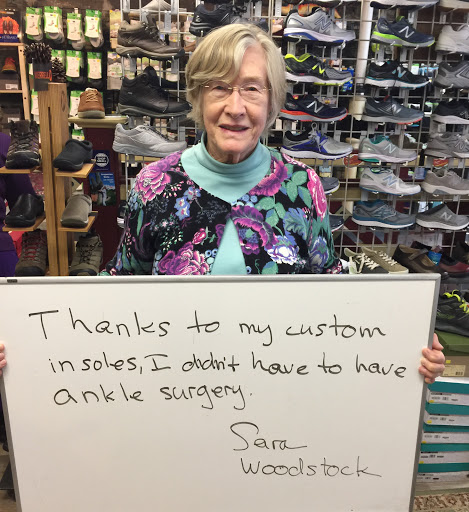 Thanks to my custom
insoles, I didn't have to have
ankle surgery.
Sara
Woodstock